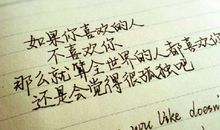 如果你喜欢的人
不喜欢你
那么就算全世界的人都喜欢你
还是会觉得很孤独吧
you like doesn